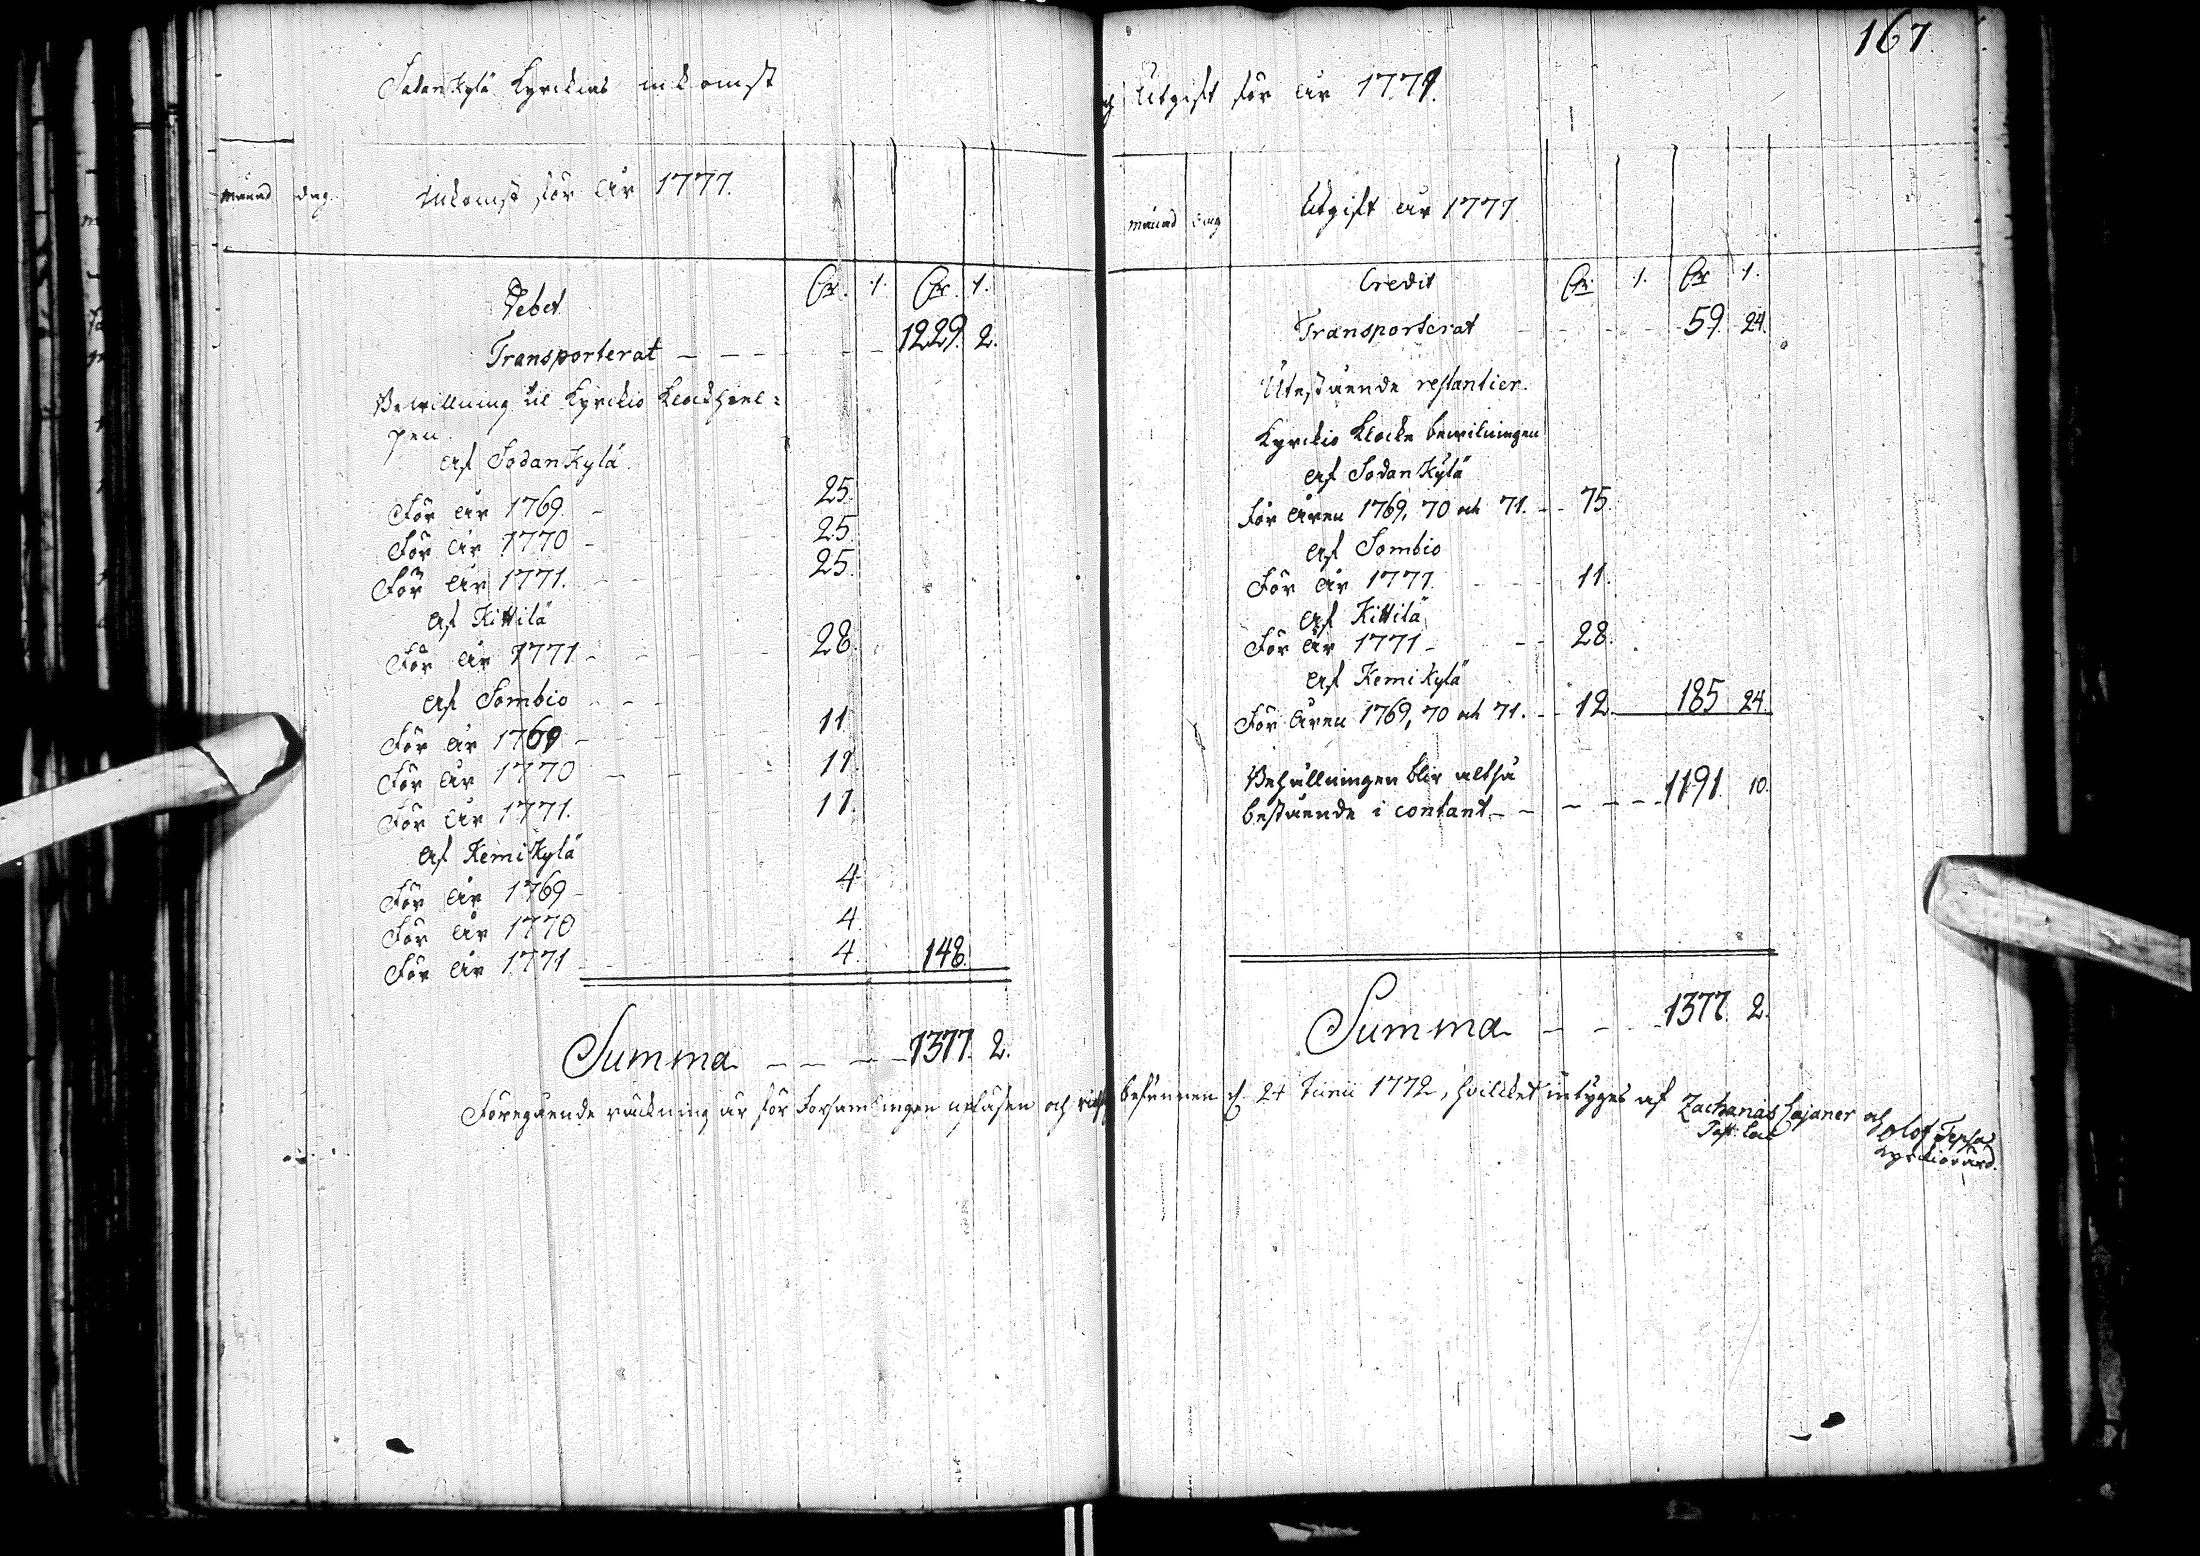 Sodankylä Kyrckios inkomst
månad dag. Inkomst för år 1771.
Debet Cr. 1. Cr. 1.
Transporterat - - - - - 1229. 2.
Bewillning til Kyrckio Klockhiel=
pen
af Sodankylä
För år 1769. - 25.
För år 1770 - 25.
För år 1771. - 25.
af Kittilä
För år 1771 - 28.
af Sombio
För år 1769 - 11.
För år 1770 - 11.
För år 1771. 11.
af Kemikylä
För år 1769 - 4.
För år 1770 4.
För år 1771 - 4. 148.
Summa - - - - 1377. 2.
167
och Utgift för år 1771.
månad dag Utgift år 1771
Credit Cr. 1. Cr 1.
Transporterat - - - - 59. 24.
Utestående restantier.
Kyrckio Klocke bewilningen
af Sodankylä
För åren 1769, 70 och 71. - - 75.
af Sombio
För år 1771 - - 11.
af Kittilä
För år 1771 - - - 28.
af Kemikylä
För åren 1769, 70 och 71. - - 12. 185 24.
Behållningen blir altså
bestående i contant - - - - - 1191. 10.
Summa - - - 1377. 2.
Föregående räckning är för Församlingen upläsen och richtig befunnen d. 24 Junii 1772, hvilcket intyges af Zacharias Cajaner och Olof Tepsa
Past: Loci Kyrckiovärd.